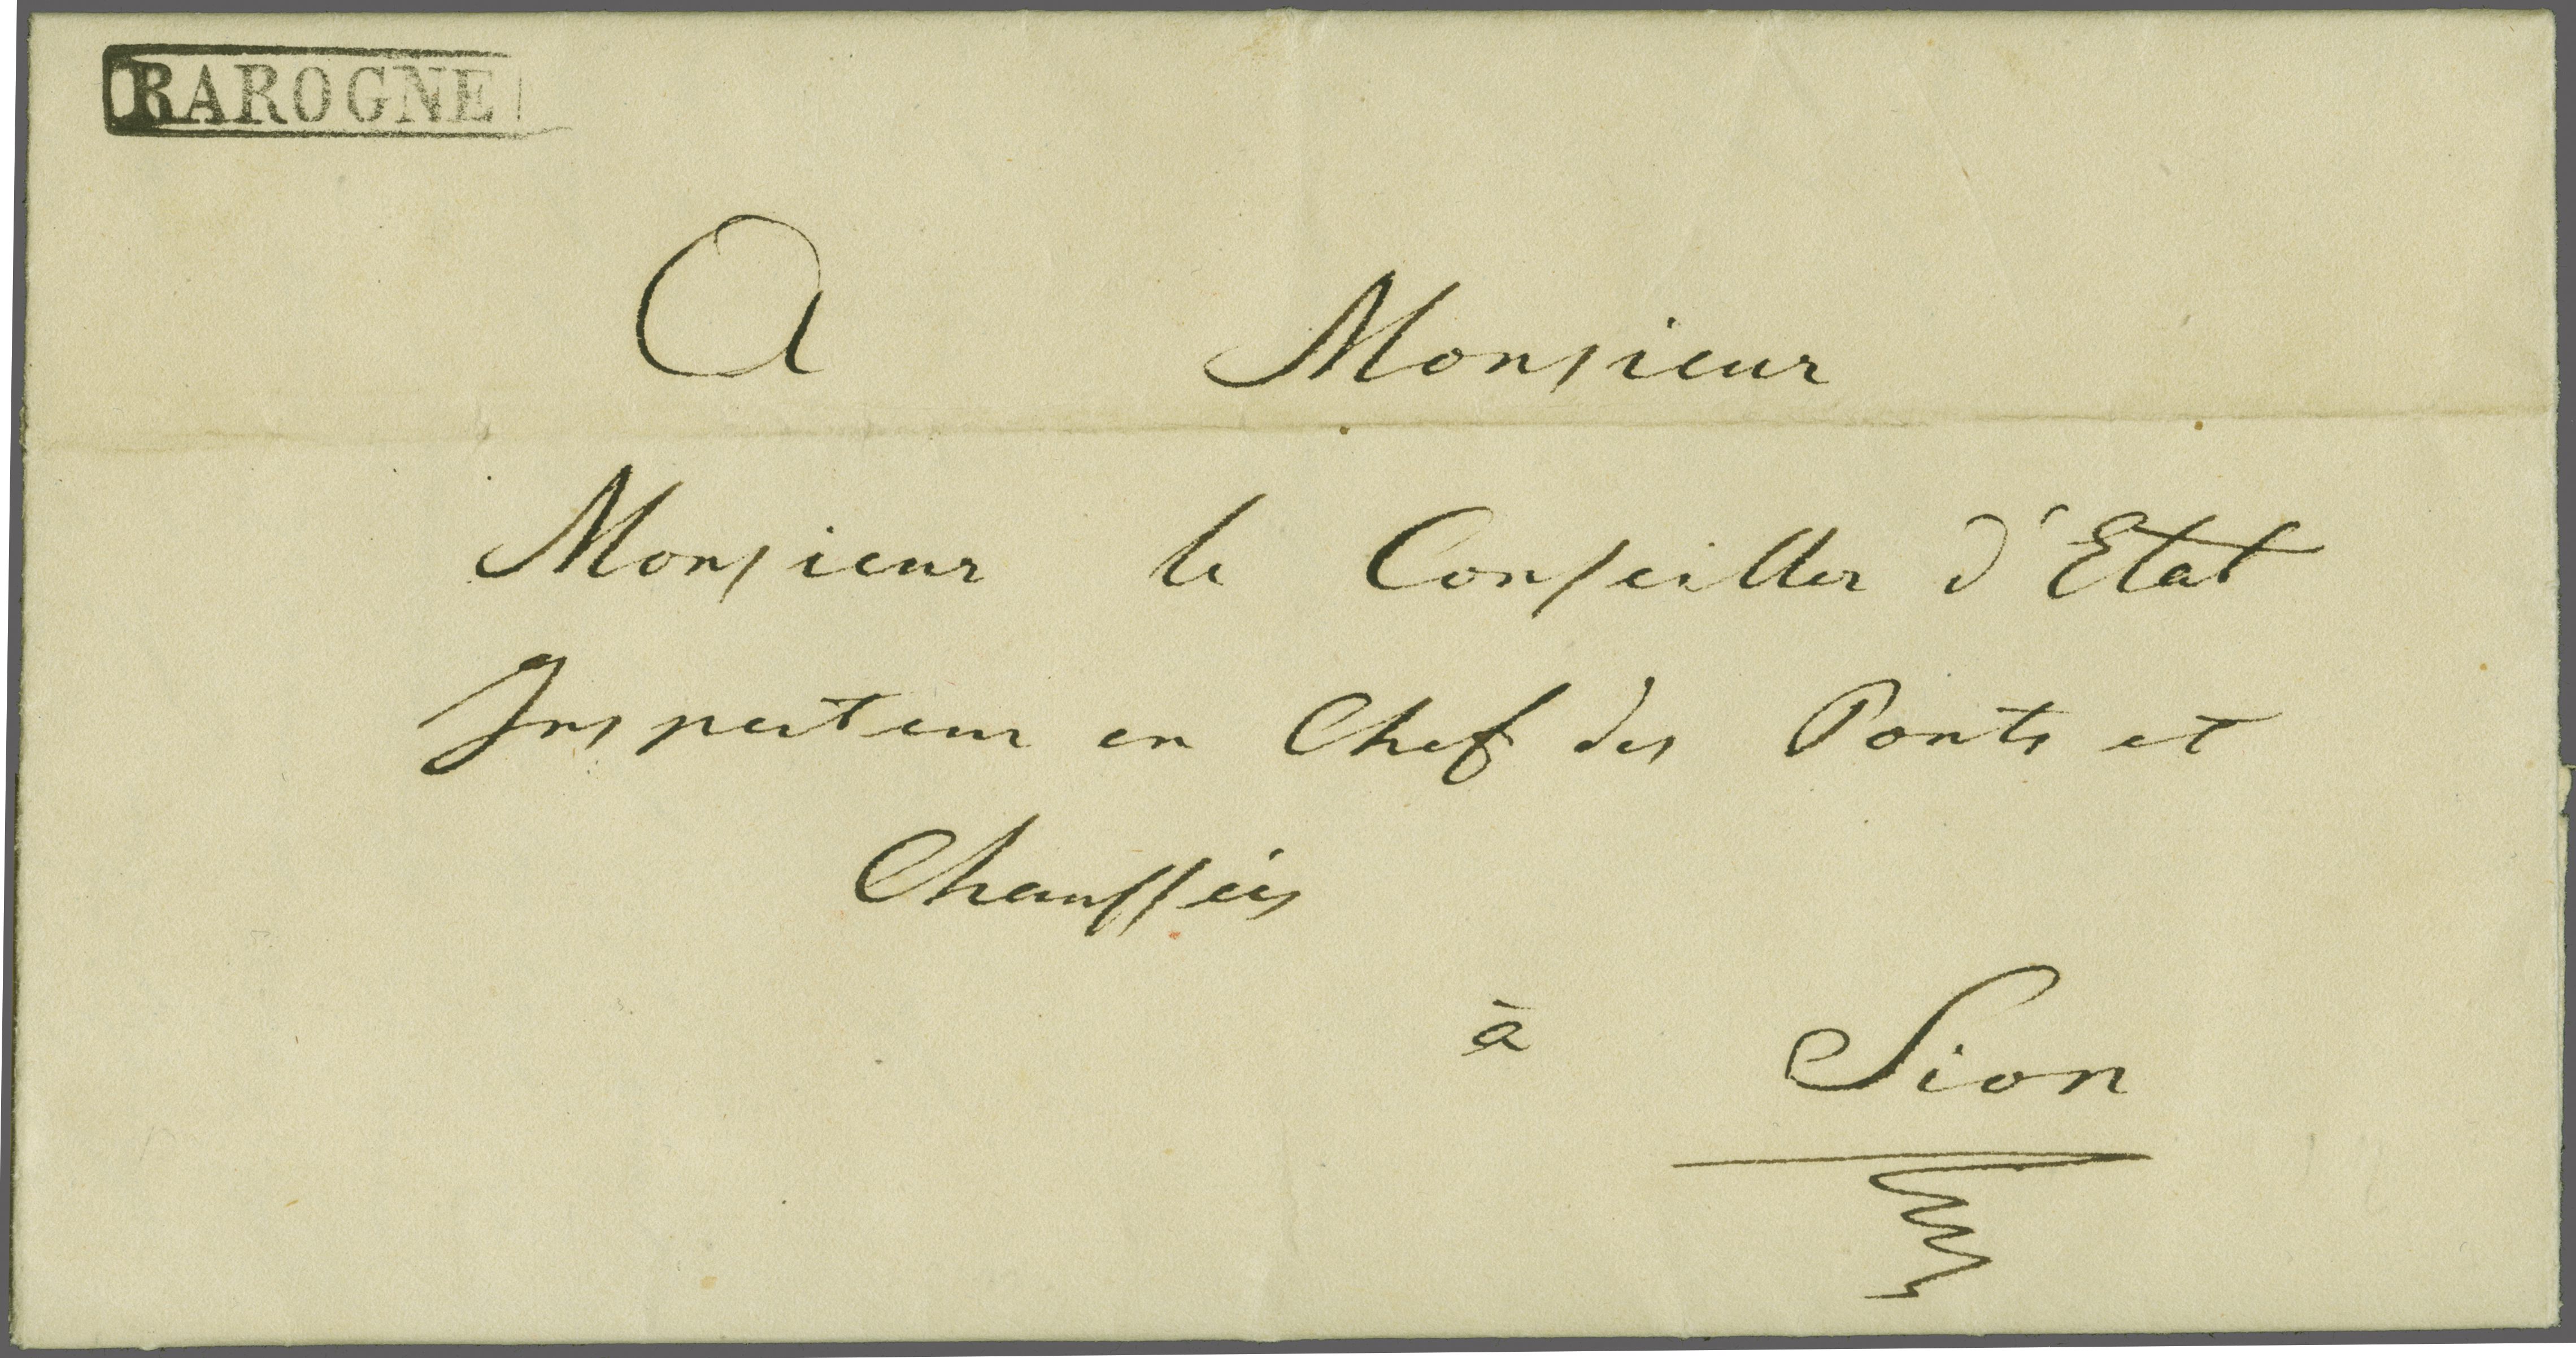 RAROGNE
A Monsieur
Monsieur le Conseiller d'Etat
Inspecteur en Chef des Ponts et
Chaussées
à Sion